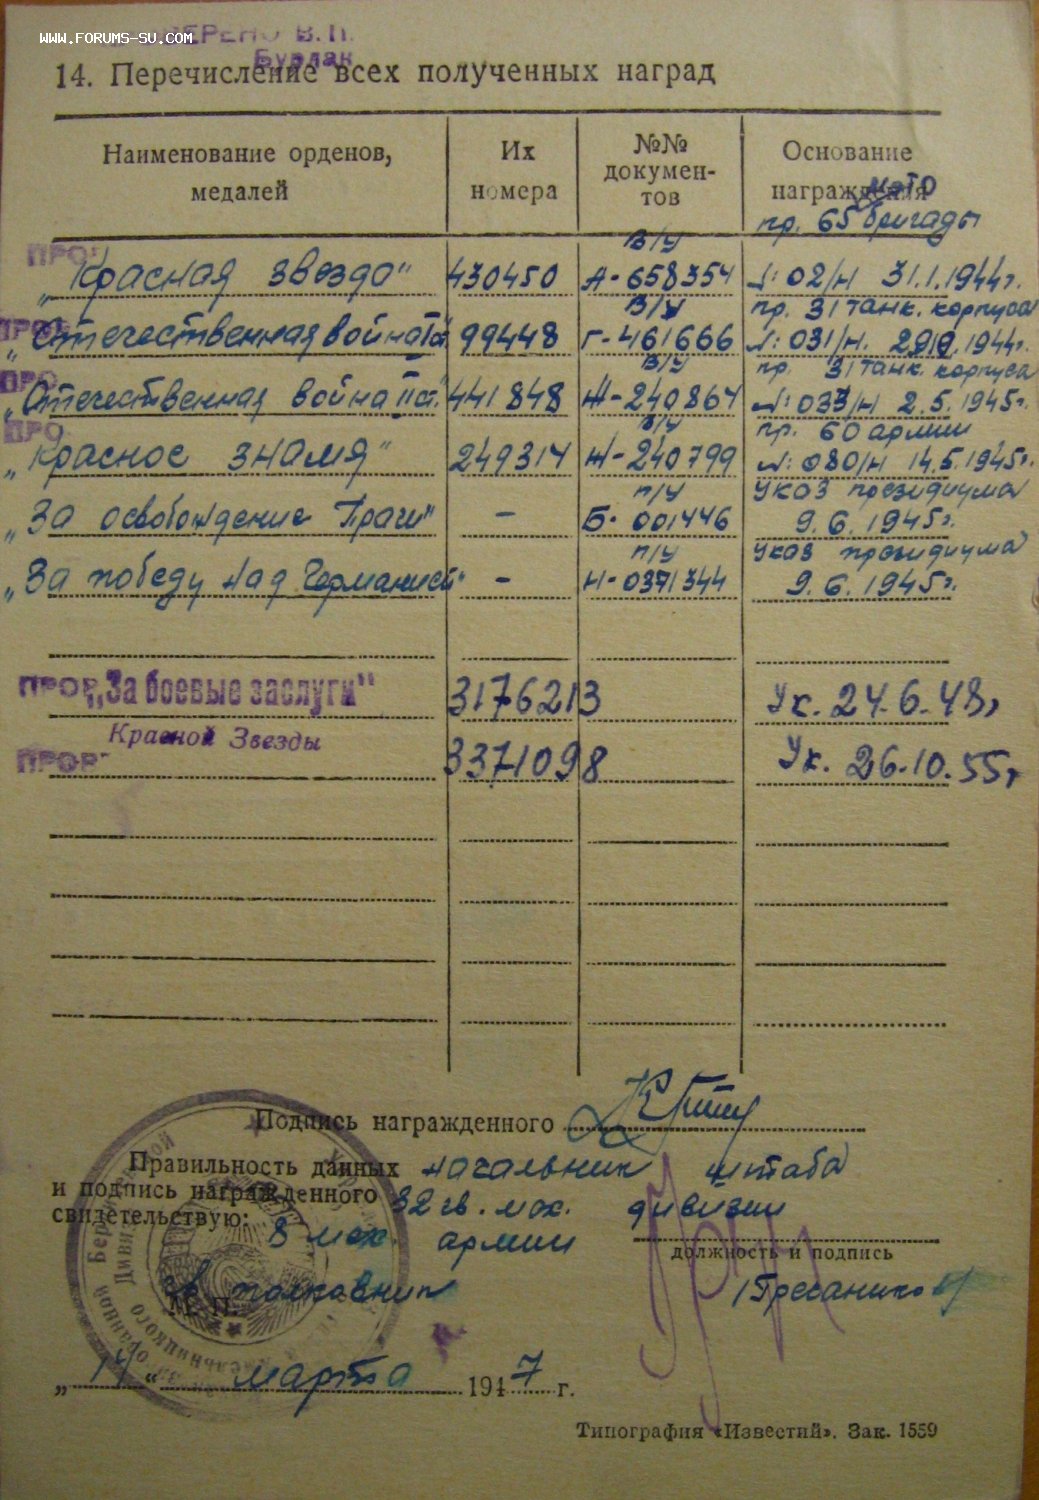 WWW.FORUMS-SU.COM
ЕРЕНО В.П.
Бурлак
14. Перечисление всех полученных наград
Наименование орденов, медалей
Их номера
№№ докумен-тов
Основание награждения
мото
пр. 65 бригады
ПРО
в/у
„Красная звезда" 430450 А-658354 №: 02/н 31.1.1944г.
в/у пр. 31 танк. корпуса
„Отечественная война I ст." 99448 Г-461666 №: 031/н. 1944г.
ПРО
в/у пр. 31 танк. корпуса
„Отечественная война II ст. 441848 Ж-240864 №: 033/н 2.5.1945г.
ПРО
в/у пр. 60 армии
„Красное знамя" 249314 Ж-240799 №: 080/н 14.5.1945г.
п/у Указ президиума
„За освобождение Праги" – Б-001446 9.6.1945г.
п/у Указ президиума
„За победу над Германией" – Н-0371344 9.6.1945г.
ПРОВ „За боевые заслуги" 3176213 Ук. 24.6.48г
Красной Звезды
ПРОВ 3371098 Ук. 26.10.55г
Подпись награжденного
Правильность данных начальник штаба
и подпись награжденного 32 гв. мех. дивизии
свидетельствую: 8 мех. армии
должность и подпись
гв. полковник
М. П.
„14" марта 1947 г.
Типография «Известий». Зак. 1559